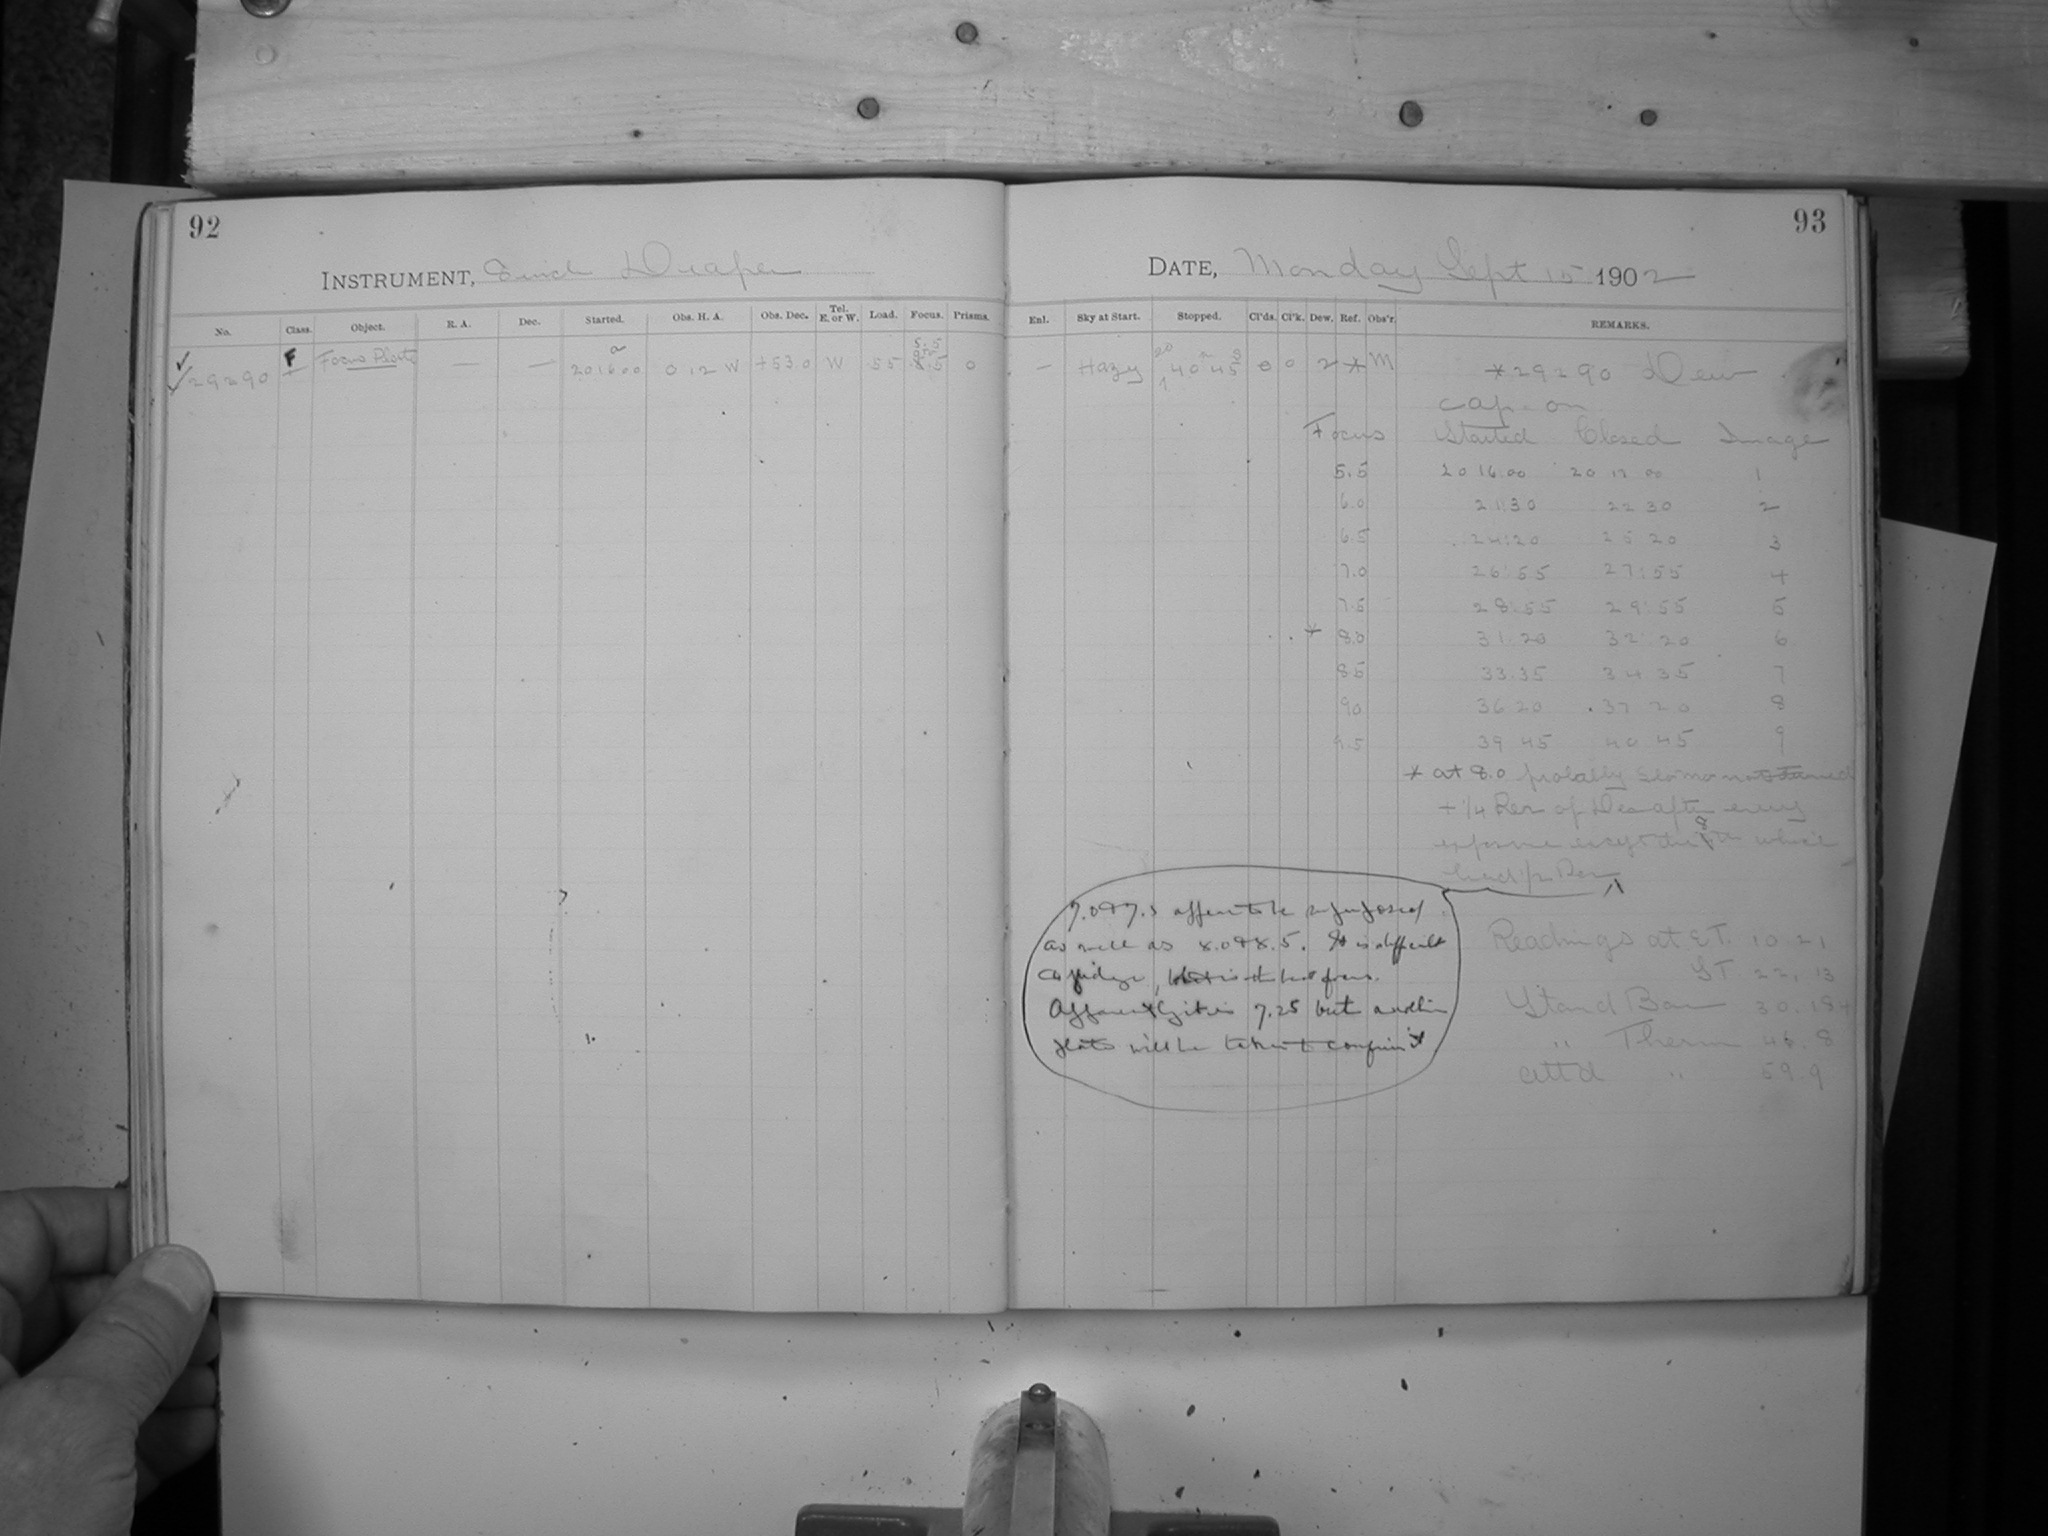 92
INSTRUMENT, 8 inch Draper
No. Class. Object. R. A. Dec. Started. Obs. H. A. Obs. Dec. Tel. E. or W. Load. Focus. Prisms.
29290 F Focus Plate — — 20 16 00 0 12 W +53.0 W 55 5.5 9.5 0
93
DATE, Monday Sept 15 1902
Enl. Sky at Start. Stopped. Cl'ds. Cl'k. Dew. Ref. Obs'r. REMARKS.
— Hazy 20 40 45 0 0 2 * M *29290 Dew
cap on
Focus Started Closed Image
5.5 20 16 00 20 17 00 1
6.0 21:30 22 30 2
6.5 24:20 25 20 3
7.0 26:55 27:55 4
7.5 28:55 29:55 5
* 8.0 31:20 32:20 6
8.5 33:35 34 35 7
9.0 36 20 37 20 8
9.5 39 45 40 45 9
* at 8.0 probably not turned
+ 1/4 Rev of Dec after every
exposure except the 8th which
had 1/2 Rev
7.0 & 7.5 appear to be superposed
as well as 8.0 & 8.5. It is difficult
to judge, what is the best focus.
Apparently it is 7.25 but another
plate will be taken to confirm it
Readings at E.T. 10 21
ST 22, 13
Stand Bar 30.184
" Therm 46.8
att'd " 59.9